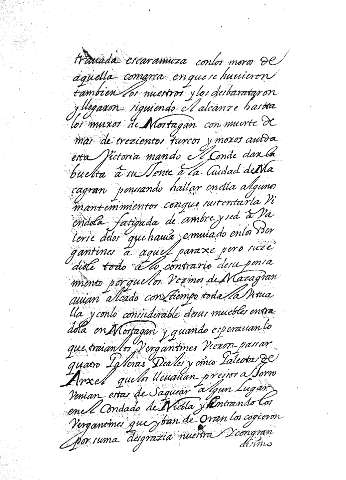 trauada escaramuza con los moros de
aquella comarca en que se huuieron
tambien los nuestros y los desbarataron
y llegaron siguiendo el alcanze hasta
los muros de Mostagan con muerte de
mas de trezientos turcos y moros auida
esta Victoria mando el Conde dar la
buelta a su Jente a la Ciudad de Ma
çagran pensando hallar en ella algunos
mantenimientos con que sustentarla Vi
endola fatigada de ambre y sed o Va
lerse de los que hauia enuiado en los Ver
gantines a aquel paraxe pero suce
diole todo a lo contrario de su pensa
miento porque los Vezinos de Mazagran
auian alçado con tiempo toda la Vitua
lla y con lo considerable de sus muebles entra
dola en Mostagan y quando esperauan lo
que traian los Vergantines Vieron passar
quatro Galeras Reales y cinco Galeotas de
Arxel que los lleuauan presos a Jorro
Venian estas de Saquear algun Lugar
en el Condado de Niebla y Encontrando los
Vergantines que yban de Oran los cogieron
por suma desgrazia nuestra y con gran